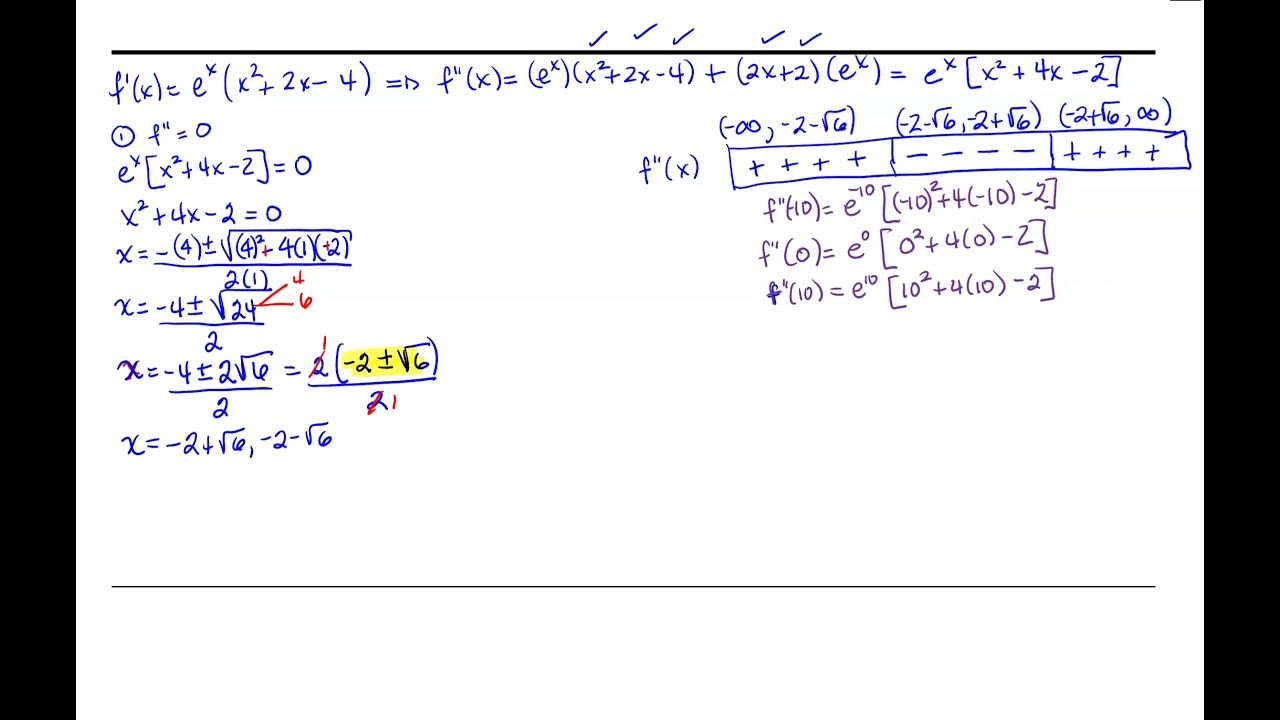 f'(x) = e^x (x² + 2x - 4) ⇒ f''(x) = (e^x)(x² + 2x - 4) + (2x + 2)(e^x) = e^x [x² + 4x - 2]
① f'' = 0
e^x [x² + 4x - 2] = 0
x² + 4x - 2 = 0
x = (-(4) ± √((4)² + 4(1)(+2))) / 2(1)
x = (-4 ± √24) / 2
4
6
x = (-4 ± 2√6) / 2 = 2(-2 ± √6) / 2
1
1
x = -2 + √6, -2 - √6
(-∞, -2-√6) (-2-√6, -2+√6) (-2+√6, ∞)
f''(x) + + + + − − − − + + + +
f''(-10) = e^-10 [(-10)² + 4(-10) - 2]
f''(0) = e^0 [0² + 4(0) - 2]
f''(10) = e^10 [10² + 4(10) - 2]